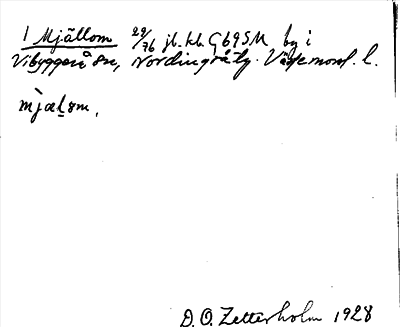 1 Mjällom 29/76 jb. kb. G69SM by i
Vibyggerå sn, Nordingrå tg. Västernorrl. l.
mjæḷom,
D. O. Zetterholm 1928